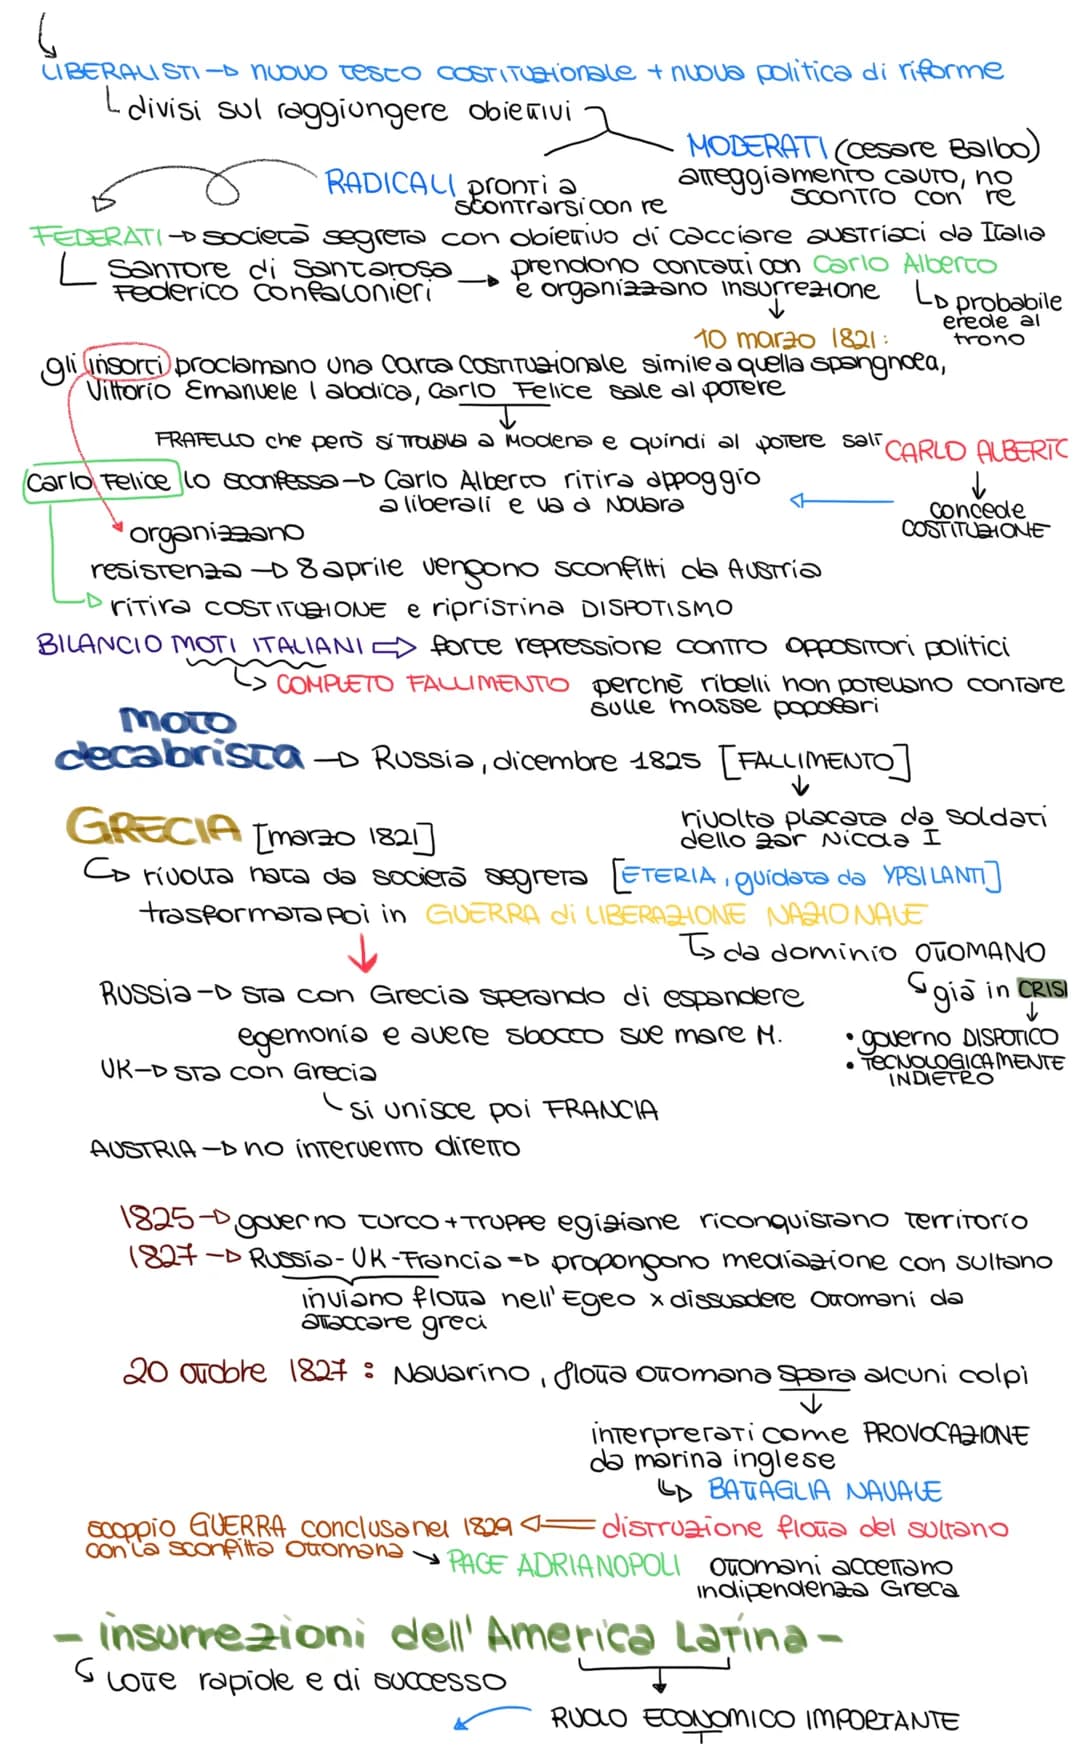 LIBERALISTI → nuovo testo costituzionale + nuova politica di riforme
divisi sul raggiungere obiettivi
MODERATI (cesare Balbo)
atteggiamento cauto, no
scontro con re
RADICALI pronti a
scontrarsi con re
FEDERATI → società segreta con obiettivo di cacciare austriaci da Italia
Santore di Santarosa
Federico Confalonieri
→ prendono contatti con Carlo Alberto
e organizzano insurrezione
probabile
erede al
trono
10 marzo 1821:
gli insorti proclamano una carta costituzionale simile a quella spangnola,
Vittorio Emanuele I abdica, Carlo Felice sale al potere
FRATELLO che però si trovava a Modena e quindi al potere salì CARLO ALBERTO
Carlo Felice lo sconfessa → Carlo Alberto ritira appoggio
a liberali e va a Novara
concede
COSTITUZIONE
organizzano
resistenza → 8 aprile vengono sconfitti da Austria
ritira COSTITUZIONE e ripristina DISPOTISMO
BILANCIO MOTI ITALIANI ⇒ forte repressione contro oppositori politici
COMPLETO FALLIMENTO perchè ribelli non potevano contare
sulle masse popolari
moto
decabrista → Russia, dicembre 1825 [FALLIMENTO]
rivolta placata da soldati
dello zar Nicola I
GRECIA [marzo 1821]
rivolta nata da società segreta [ETERIA, guidata da YPSILANTI]
trasformata poi in GUERRA di LIBERAZIONE NAZIONALE
da dominio OTTOMANO
già in CRISI
• governo DISPOTICO
• TECNOLOGICAMENTE
INDIETRO
Russia → sta con Grecia sperando di espandere
egemonia e avere sbocco sul mare M.
UK → sta con Grecia
si unisce poi FRANCIA
AUSTRIA → no intervento diretto
1825 → governo turco + truppe egiziane riconquistano territorio
1827 → Russia - UK - Francia ⇒ propongono mediazione con sultano
inviano flotta nell'Egeo x dissuadere Ottomani da
attaccare greci
20 ottobre 1827 : Navarino, flotta ottomana spara alcuni colpi
interpretati come PROVOCAZIONE
da marina inglese
BATTAGLIA NAVALE
scoppio GUERRA conclusa nel 1829 ⇐ distruzione flotta del sultano
con la sconfitta Ottomana
PACE ADRIANOPOLI ottomani accettano
indipendenza Greca
- insurrezioni dell'America Latina -
Lotte rapide e di successo
RUOLO ECONOMICO IMPORTANTE